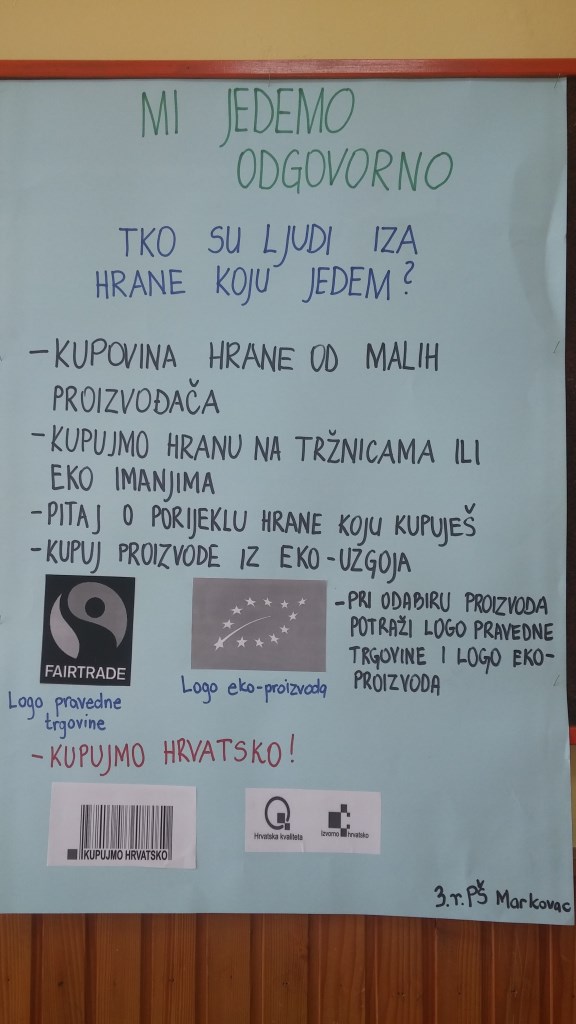 MI JEDEMO
ODGOVORNO
TKO SU LJUDI IZA
HRANE KOJU JEDEM?
- KUPOVINA HRANE OD MALIH
PROIZVOĐAČA
- KUPUJMO HRANU NA TRŽNICAMA ILI
EKO IMANJIMA
- PITAJ O PORIJEKLU HRANE KOJU KUPUJEŠ
- KUPUJ PROIZVODE IZ EKO-UZGOJA
FAIRTRADE
Logo pravedne
trgovine
Logo eko-proizvoda
- PRI ODABIRU PROIZVODA
POTRAŽI LOGO PRAVEDNE
TRGOVINE I LOGO EKO-
PROIZVODA
- KUPUJMO HRVATSKO!
KUPUJMO HRVATSKO
Hrvatska kvaliteta
Izvorno hrvatsko
3.r. PŠ Markovac